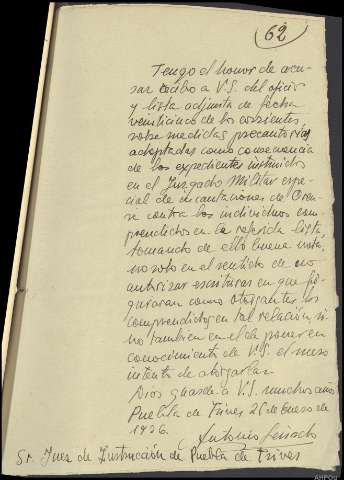 62
Tengo el honor de acu-
sar recibo a V.S. del oficio
y lista adjunta de fecha
veinticinco de los corrientes,
sobre medidas precautorias
adoptadas como consecuencia
de los expedientes instruidos
en el Juzgado Militar espe-
cial de incautaciones de Oren-
se contra los individuos com-
prendidos en la referida lista,
tomando de ello buena nota,
no solo en el sentido de no
autorizar escrituras en que fi-
guraran como otorgantes los
comprendidos en tal relación, si
no tambien en el de poner en
conocimiento de V.S. el mero
intento de otorgarlas.
Dios guarde a V.S. muchos años
Puebla de Trives 26 de Enero de
1936.
Antonio
Sr. Juez de Instrucción de Puebla de Trives
AHPOu